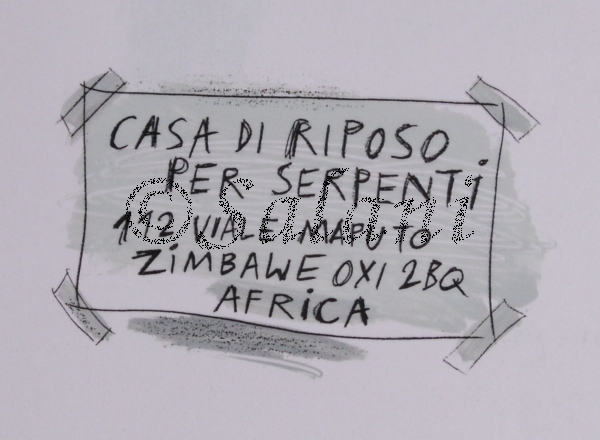 CASA DI RIPOSO
PER SERPENTI
112 VIALE MAPUTO
ZIMBAWE OXI 2BQ
AFRICA
©Salani